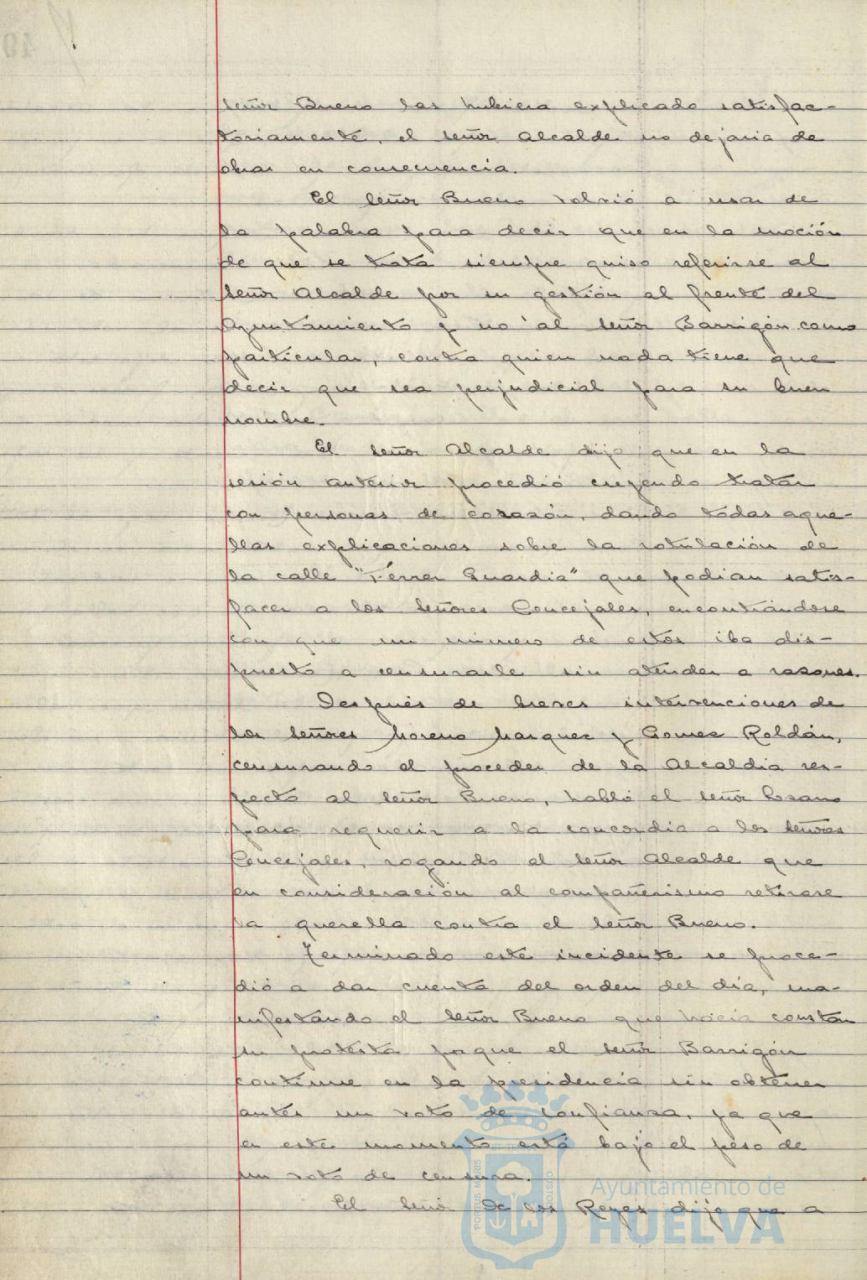 señor Bueno las hubiera explicado satisfac-
toriamente, el señor Alcalde no dejaria de
obrar en consecuencia.
El señor Bueno volvió a usar de
la palabra para decir que en la moción
de que se trata siempre quiso referirse al
señor Alcalde por su gestión al frente del
Ayuntamiento y no al señor Barrigón como
particular, contra quien nada tiene que
decir que sea perjudicial para su buen
nombre.
El señor Alcalde dijo que en la
sesión anterior procedió creyendo tratar
con personas de corazón, dando todas aque-
llas explicaciones sobre la rotulación de
la calle "Férrer Guardia" que podian satis-
facer a los señores Concejales, encontrándose
con que un número de estos iba dis-
puesto a censurarle sin atender a razones.
Después de breves intervenciones de
los señores Moreno Marquez y Gomez Roldán,
censurando el proceder de la Alcaldia res-
pecto al señor Bueno, habló el señor Lozano
para requerir a la concordia a los señores
Concejales, rogando al señor Alcalde que
en consideración al compañerismo retirase
la querella contra el señor Bueno.
Terminado este incidente se proce-
dió a dar cuenta del orden del día, ma-
nifestando el señor Bueno que hacia constar
su protesta porque el señor Barrigón
continue en la presidencia sin obtener
antes un voto de confianza, ya que
en este momento está bajo el peso de
un voto de censura.
El señor de los Reyes dijo que a
Ayuntamiento de
HUELVA